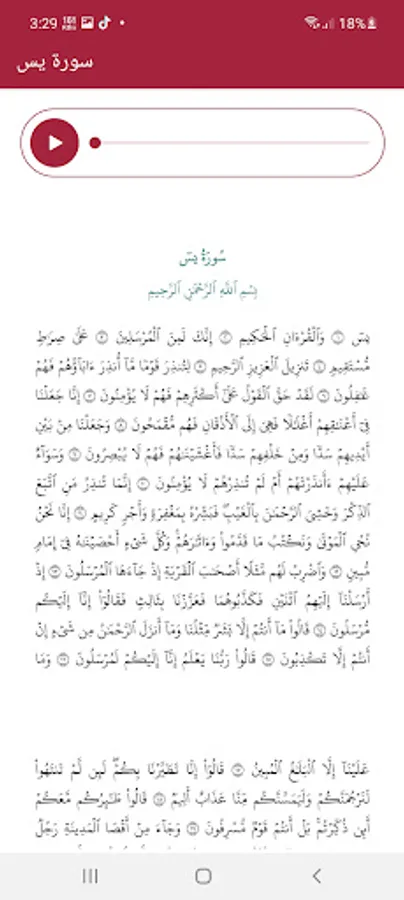 3:29
18%
سورة يس
سُورَةُ يسٓ
بِسْمِ ٱللَّهِ ٱلرَّحْمَٰنِ ٱلرَّحِيمِ
يسٓ ۝١ وَٱلْقُرْءَانِ ٱلْحَكِيمِ ۝٢ إِنَّكَ لَمِنَ ٱلْمُرْسَلِينَ ۝٣ عَلَىٰ صِرَٰطٍ
مُّسْتَقِيمٍ ۝٤ تَنزِيلَ ٱلْعَزِيزِ ٱلرَّحِيمِ ۝٥ لِتُنذِرَ قَوْمًا مَّآ أُنذِرَ ءَابَآؤُهُمْ فَهُمْ
غَٰفِلُونَ ۝٦ لَقَدْ حَقَّ ٱلْقَوْلُ عَلَىٰٓ أَكْثَرِهِمْ فَهُمْ لَا يُؤْمِنُونَ ۝٧ إِنَّا جَعَلْنَا
فِىٓ أَعْنَٰقِهِمْ أَغْلَٰلًا فَهِىَ إِلَى ٱلْأَذْقَانِ فَهُم مُّقْمَحُونَ ۝٨ وَجَعَلْنَا مِنۢ بَيْنِ
أَيْدِيهِمْ سَدًّا وَمِنْ خَلْفِهِمْ سَدًّا فَأَغْشَيْنَٰهُمْ فَهُمْ لَا يُبْصِرُونَ ۝٩ وَسَوَآءٌ
عَلَيْهِمْ ءَأَنذَرْتَهُمْ أَمْ لَمْ تُنذِرْهُمْ لَا يُؤْمِنُونَ ۝١٠ إِنَّمَا تُنذِرُ مَنِ ٱتَّبَعَ
ٱلذِّكْرَ وَخَشِىَ ٱلرَّحْمَٰنَ بِٱلْغَيْبِ فَبَشِّرْهُ بِمَغْفِرَةٍ وَأَجْرٍ كَرِيمٍ ۝١١ إِنَّا نَحْنُ
نُحْىِ ٱلْمَوْتَىٰ وَنَكْتُبُ مَا قَدَّمُوا۟ وَءَاثَٰرَهُمْ وَكُلَّ شَىْءٍ أَحْصَيْنَٰهُ فِىٓ إِمَامٍ
مُّبِينٍ ۝١٢ وَٱضْرِبْ لَهُم مَّثَلًا أَصْحَٰبَ ٱلْقَرْيَةِ إِذْ جَآءَهَا ٱلْمُرْسَلُونَ ۝١٣ إِذْ
أَرْسَلْنَآ إِلَيْهِمُ ٱثْنَيْنِ فَكَذَّبُوهُمَا فَعَزَّزْنَا بِثَالِثٍ فَقَالُوٓا۟ إِنَّآ إِلَيْكُم
مُّرْسَلُونَ ۝١٤ قَالُوا۟ مَآ أَنتُمْ إِلَّا بَشَرٌ مِّثْلُنَا وَمَآ أَنزَلَ ٱلرَّحْمَٰنُ مِن شَىْءٍ إِنْ
أَنتُمْ إِلَّا تَكْذِبُونَ ۝١٥ قَالُوا۟ رَبُّنَا يَعْلَمُ إِنَّآ إِلَيْكُمْ لَمُرْسَلُونَ ۝١٦ وَمَا
عَلَيْنَآ إِلَّا ٱلْبَلَٰغُ ٱلْمُبِينُ ۝١٧ قَالُوٓا۟ إِنَّا تَطَيَّرْنَا بِكُمْ لَئِن لَّمْ تَنتَهُوا۟
لَنَرْجُمَنَّكُمْ وَلَيَمَسَّنَّكُم مِّنَّا عَذَابٌ أَلِيمٌ ۝١٨ قَالُوا۟ طَٰٓئِرُكُم مَّعَكُمْ
أَئِن ذُكِّرْتُم بَلْ أَنتُمْ قَوْمٌ مُّسْرِفُونَ ۝١٩ وَجَآءَ مِنْ أَقْصَا ٱلْمَدِينَةِ رَجُلٌ